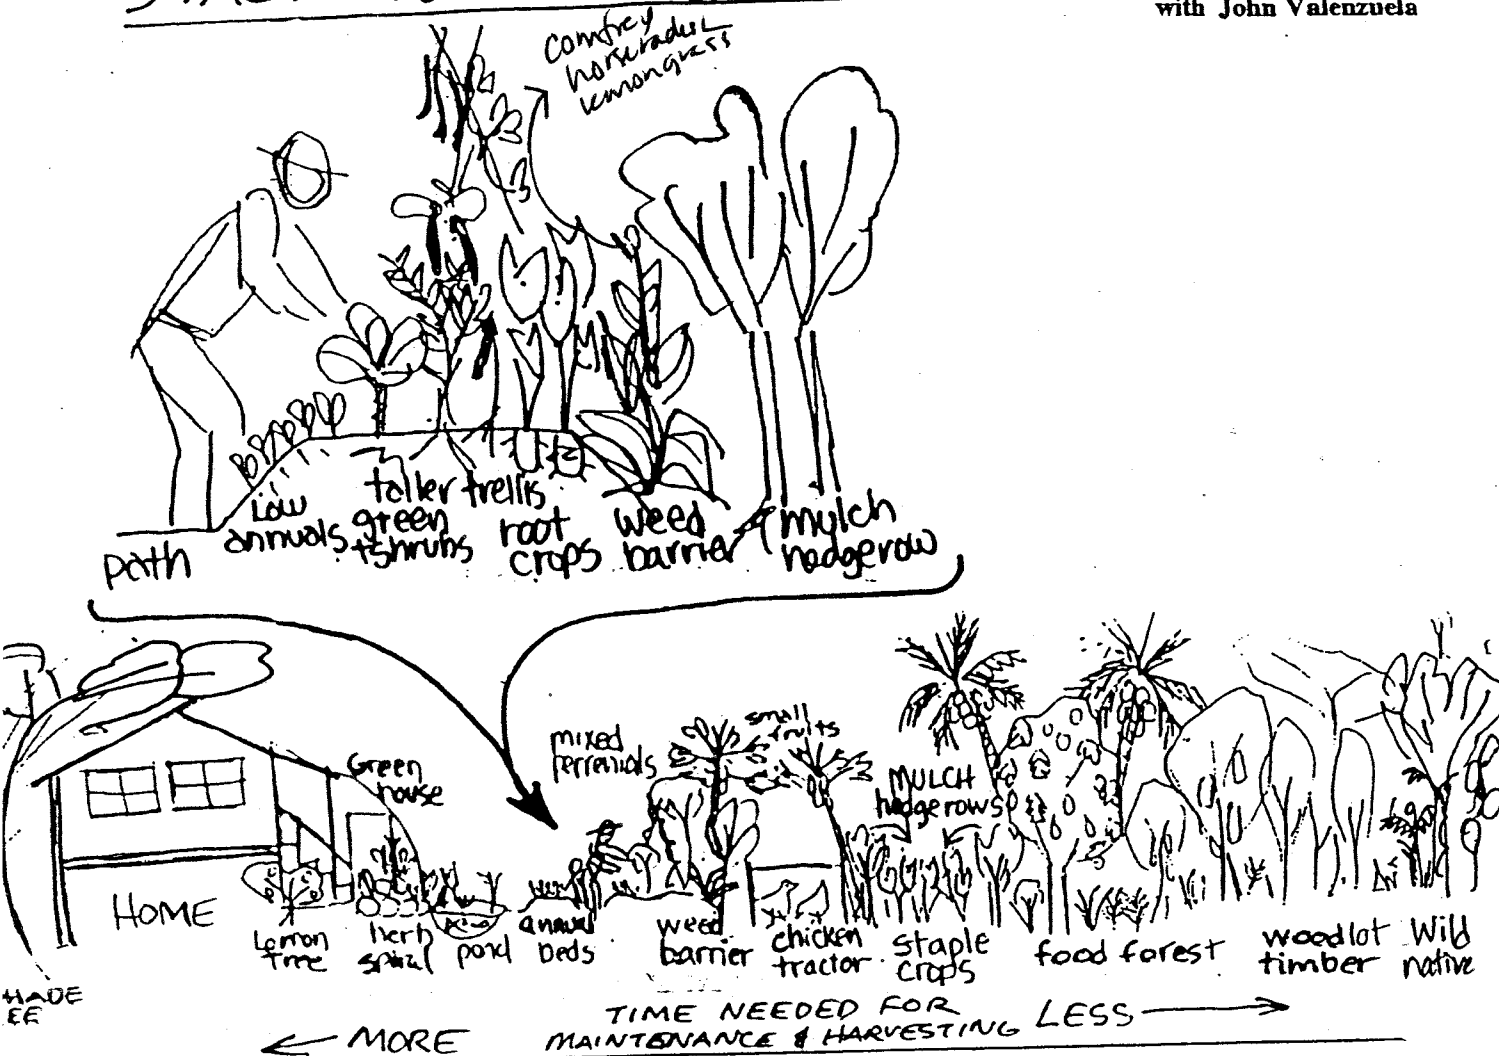 with John Valenzuela
comfrey
horseradish
lemongrass
path
Low
annuals
taller
green
+shrubs
trellis
root
crops
weed
barrier
mulch
hedgerow
Green
house
mixed
perrenials
small
fruits
MULCH
hedgerows
HOME
Lemon
tree
herb
spiral
pond
annual
beds
weed
barrier
chicken
tractor
staple
crops
food forest
woodlot
timber
Wild
native
HADE
EE
← MORE
TIME NEEDED FOR
MAINTENANCE & HARVESTING
LESS →